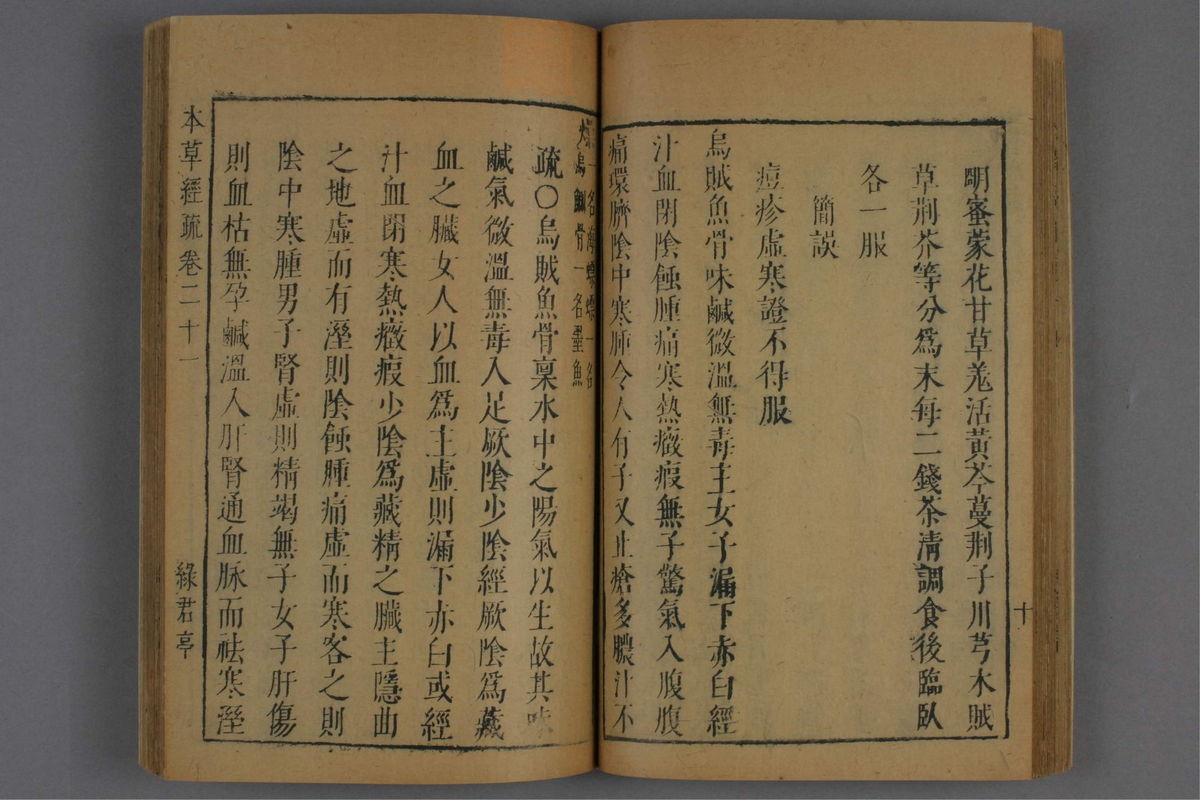 十
明蜜蒙花甘草羗活黃芩蔓荆子川芎木賊
草荆芥等分為末每二錢茶清調食後臨臥
各一服
簡誤
痘疹虛寒證不得服
烏賊魚骨味鹹微溫無毒主女子漏下赤白經
汁血閉陰蝕腫痛寒熱癥瘕無子驚氣入腹腹
痛環臍陰中寒腫令人有子又止瘡多膿汁不
燥一名海螵蛸一名
烏鰂骨一名墨魚
疏○烏賊魚骨稟水中之陽氣以生故其味
鹹氣微溫無毒入足厥陰少陰經厥陰為藏
血之臟女人以血為主虛則漏下赤白或經
汁血閉寒熱癥瘕少陰為藏精之臟主隱曲
之地虛而有溼則陰蝕腫痛虛而寒客之則
陰中寒腫男子腎虛則精竭無子女子肝傷
則血枯無孕鹹溫入肝腎通血脉而祛寒溼
本草經疏卷二十一
綠君亭